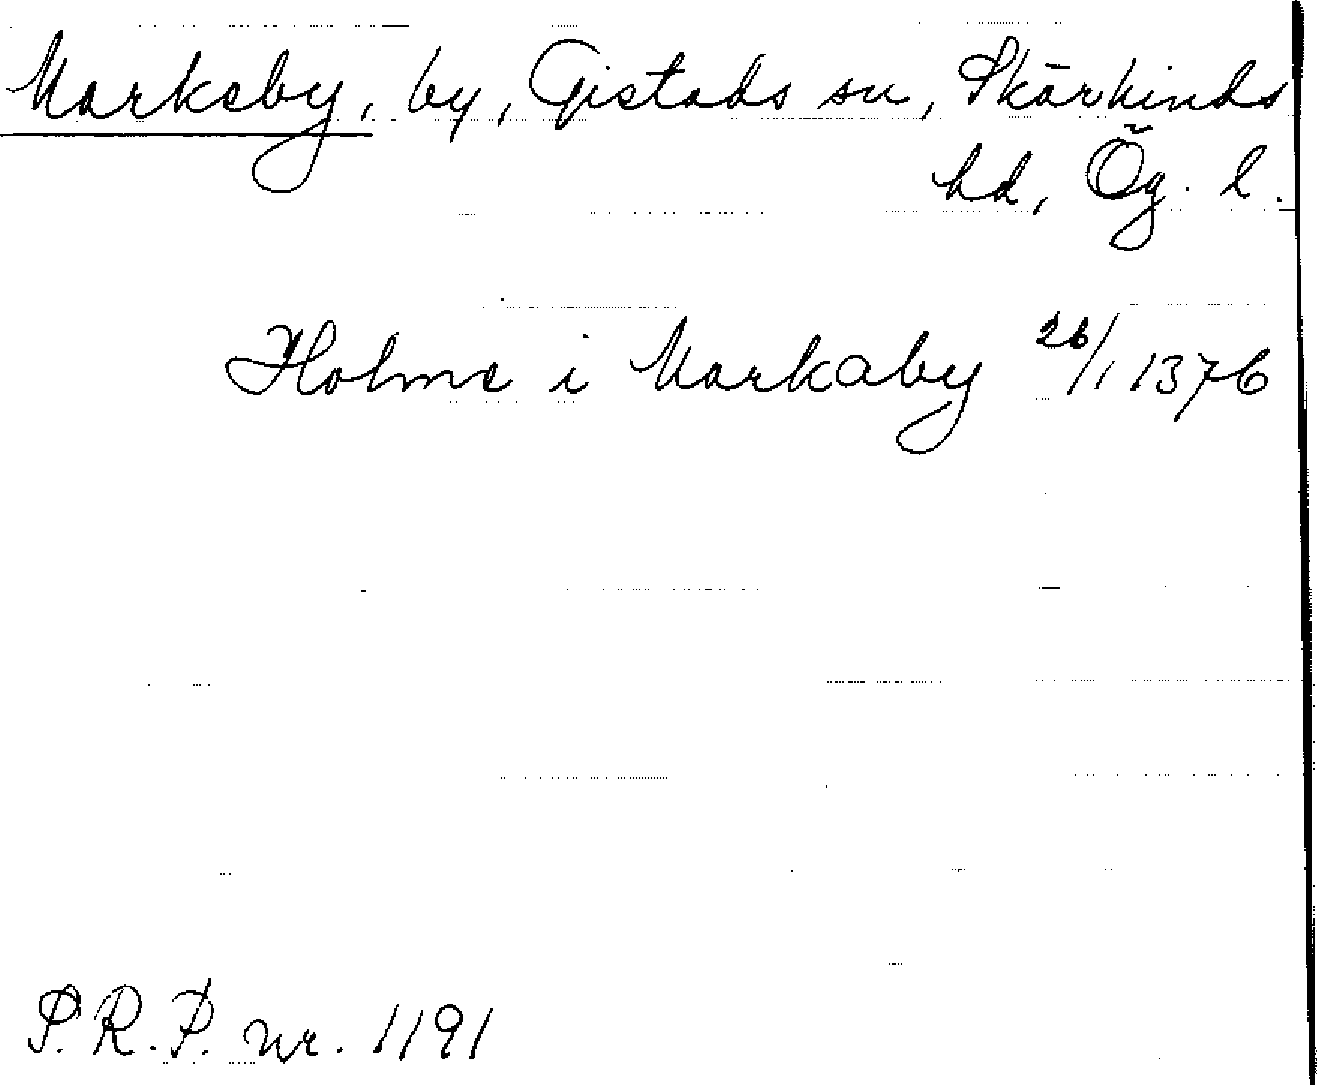 Markeby, by, Gistads sn, Skärkinds
hd, Ög. l.
Holme i Markaby 26/1 1376
S.R.P. nr. 1191